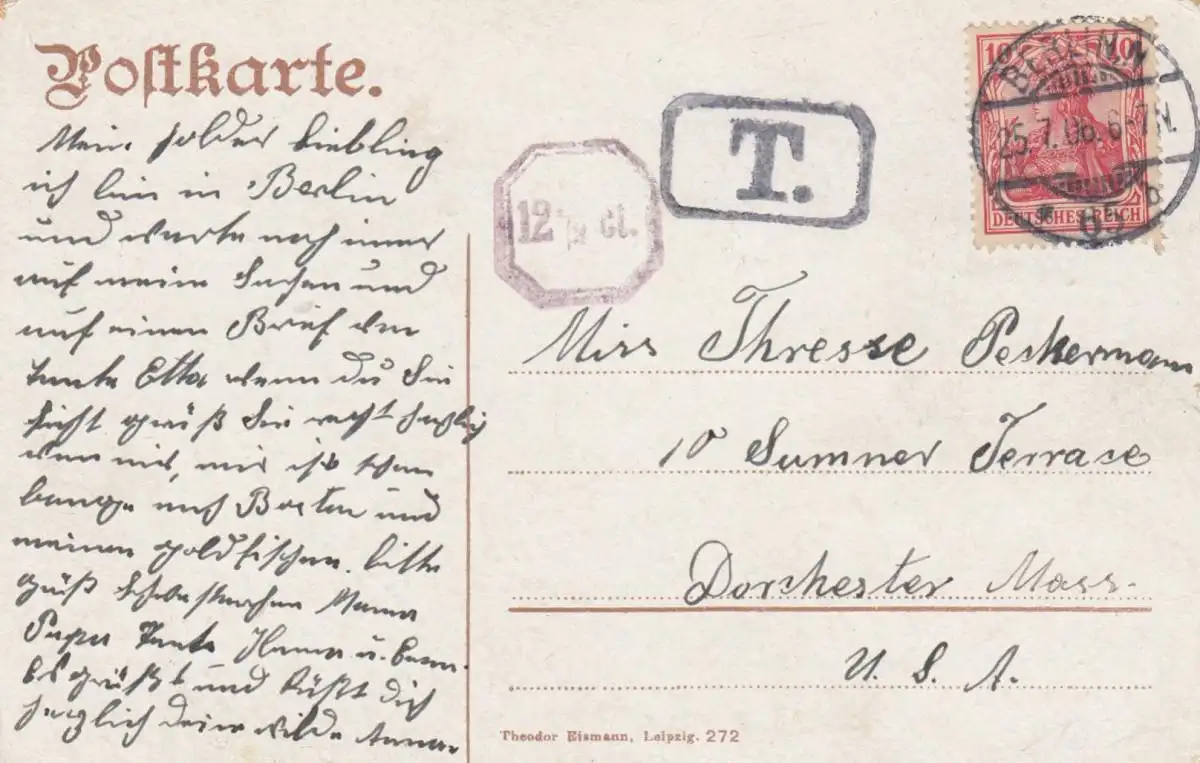 Postkarte.
Mein holder Liebling
ich bin in Berlin
und warte noch imer
auf meine Sachen und
auf einen Brief von
tante Etta wenn du Sie
siehst grüß Sie recht herzlich
von mir, mir ist schon
bange nach Boston und
meinen goldfischen. bitte
grüß Schwesterchen Mama
Papa Tante
grüßt und küßt Dich
herzlich deine wilde Anna.
12 ct.
T.
10 10
DEUTSCHES REICH
BERLIN N
25.7.06. 6-7N.
65
Miss Thresse Peckermann
10 Sumner Terrase
Dorchester Mass.
U. S. A.
Theodor Eismann, Leipzig. 272